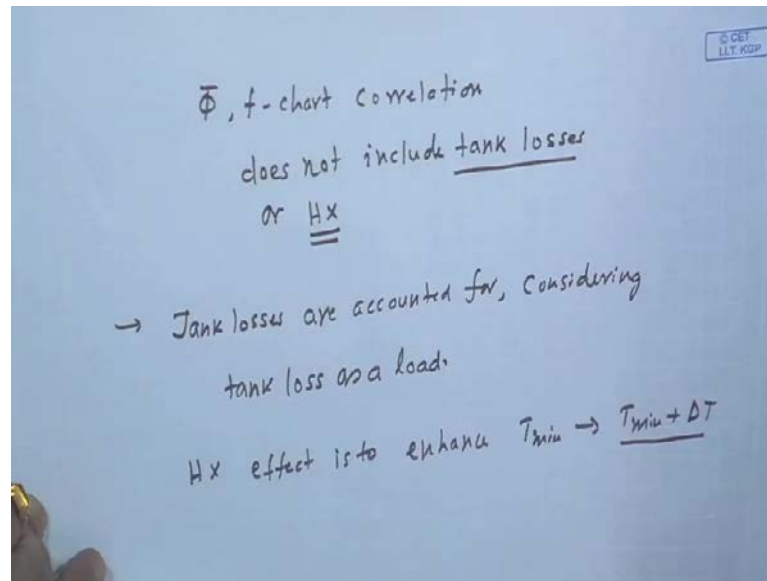 © CET
I.I.T. KGP
Φ̄, f-chart correlation
does not include tank losses
or HX
→ Tank losses are accounted for, considering
tank loss as a load.
HX effect is to enhance Tmin → Tmin + ΔT